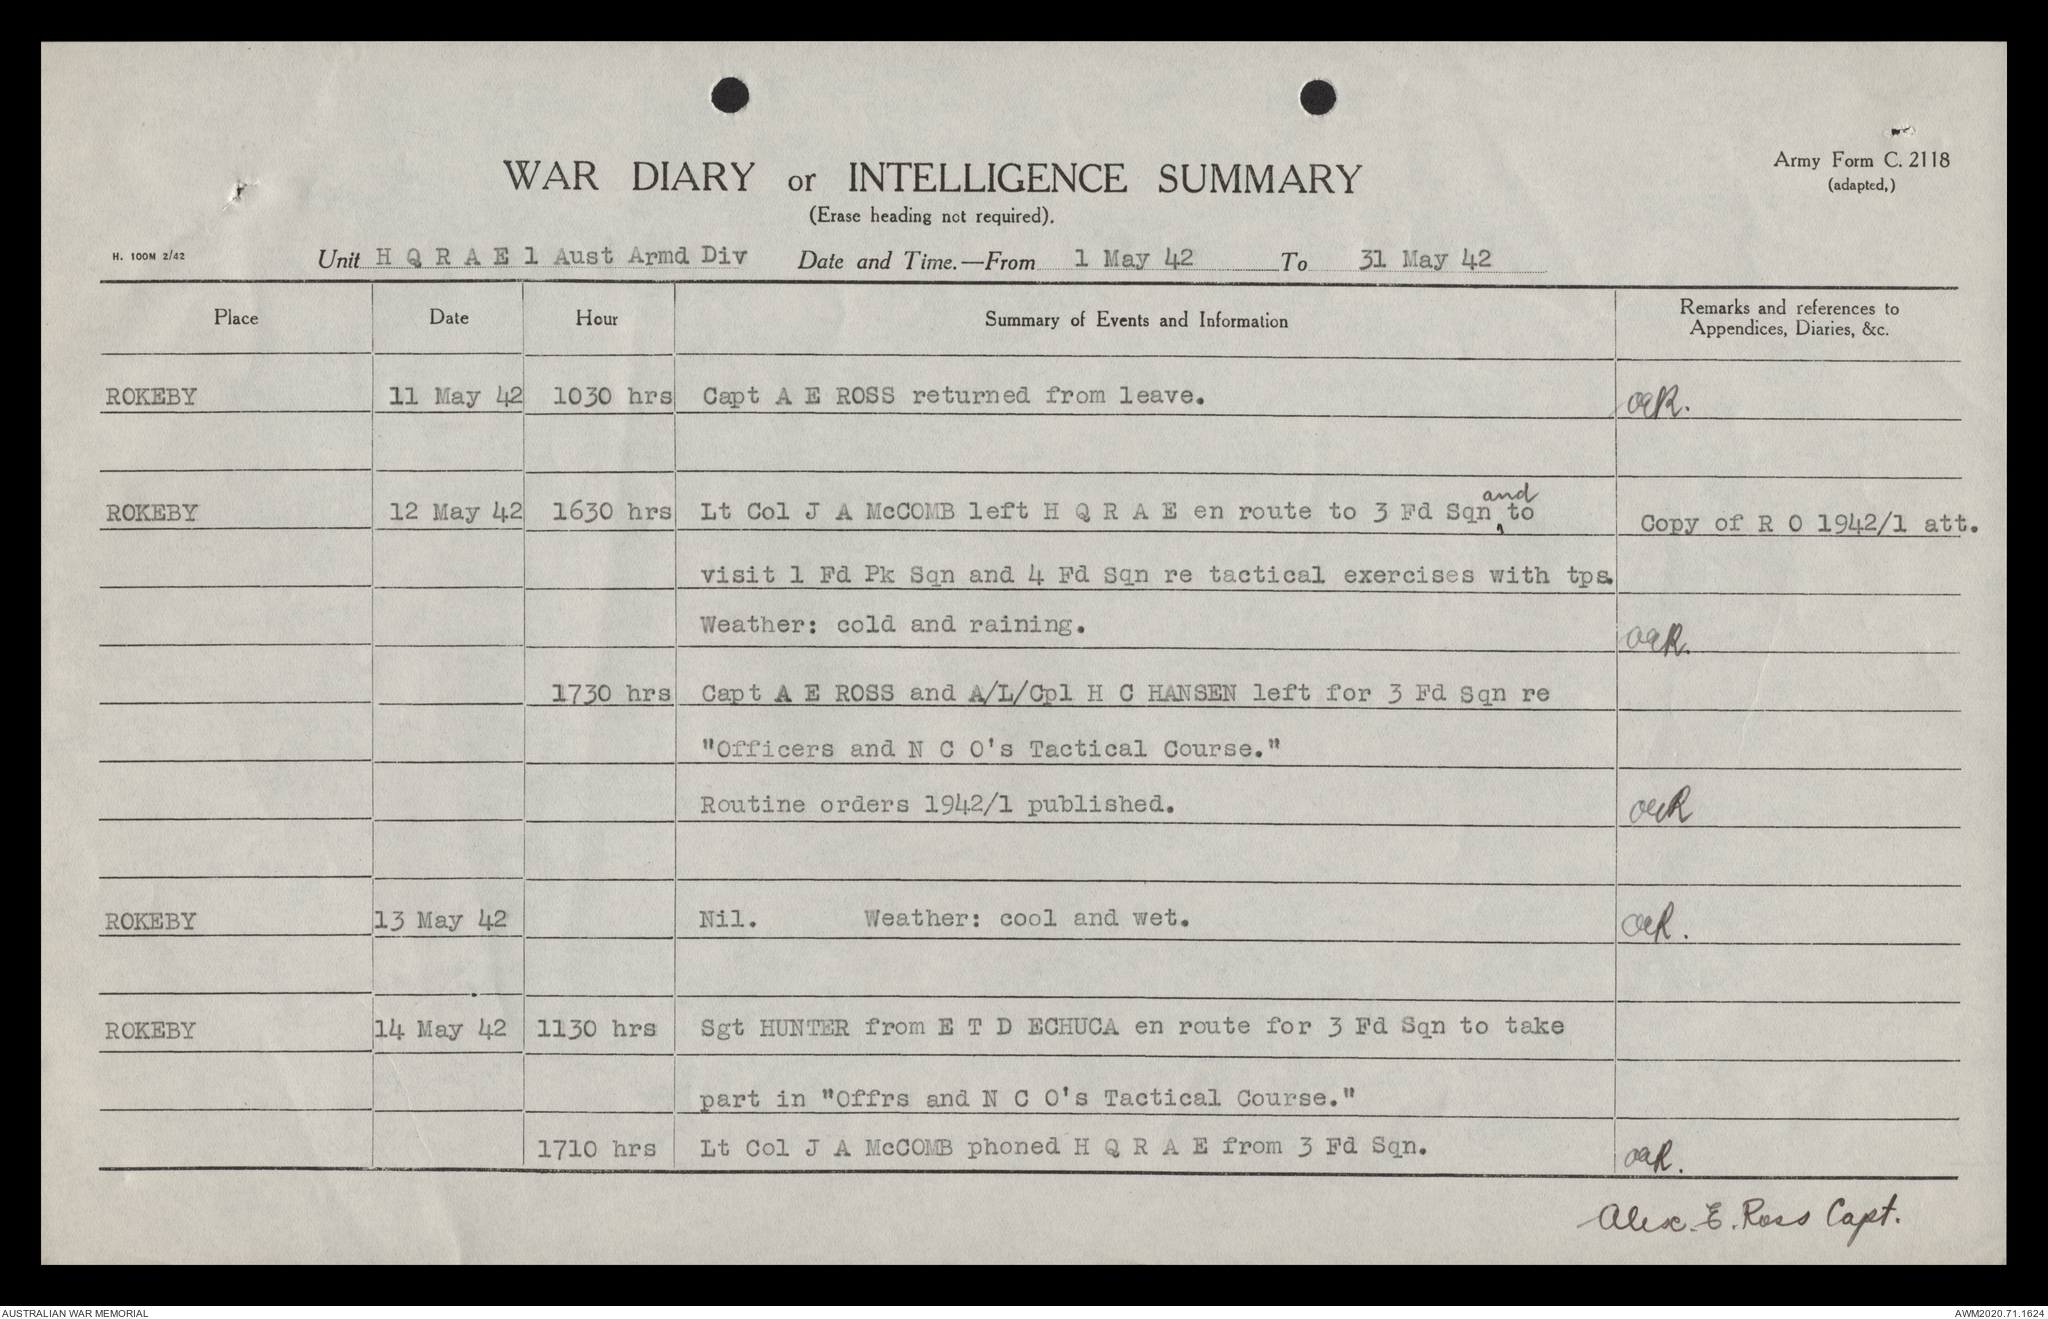 WAR DIARY or INTELLIGENCE SUMMARY
(Erase heading not required).
Army Form C. 2118
(adapted,)
H. 100M 2/42
Unit H Q R A E 1 Aust Armd Div Date and Time.—From 1 May 42 To 31 May 42
Place Date Hour Summary of Events and Information Remarks and references to
Appendices, Diaries, &c.
ROKEBY 11 May 42 1030 hrs Capt A E ROSS returned from leave. aeR.
ROKEBY 12 May 42 1630 hrs Lt Col J A McCOMB left H Q R A E en route to 3 Fd Sqn and to Copy of R O 1942/1 att.
visit 1 Fd Pk Sqn and 4 Fd Sqn re tactical exercises with tps.
Weather: cold and raining. aeR.
1730 hrs Capt A E ROSS and A/L/Cpl H C HANSEN left for 3 Fd Sqn re
"Officers and N C O's Tactical Course."
Routine orders 1942/1 published. aeR
ROKEBY 13 May 42 Nil. Weather: cool and wet. aeR.
ROKEBY 14 May 42 1130 hrs Sgt HUNTER from E T D ECHUCA en route for 3 Fd Sqn to take
part in "Offrs and N C O's Tactical Course."
1710 hrs Lt Col J A McCOMB phoned H Q R A E from 3 Fd Sqn. aeR.
Alex. E. Ross Capt.
AUSTRALIAN WAR MEMORIAL AWM2020.71.1624